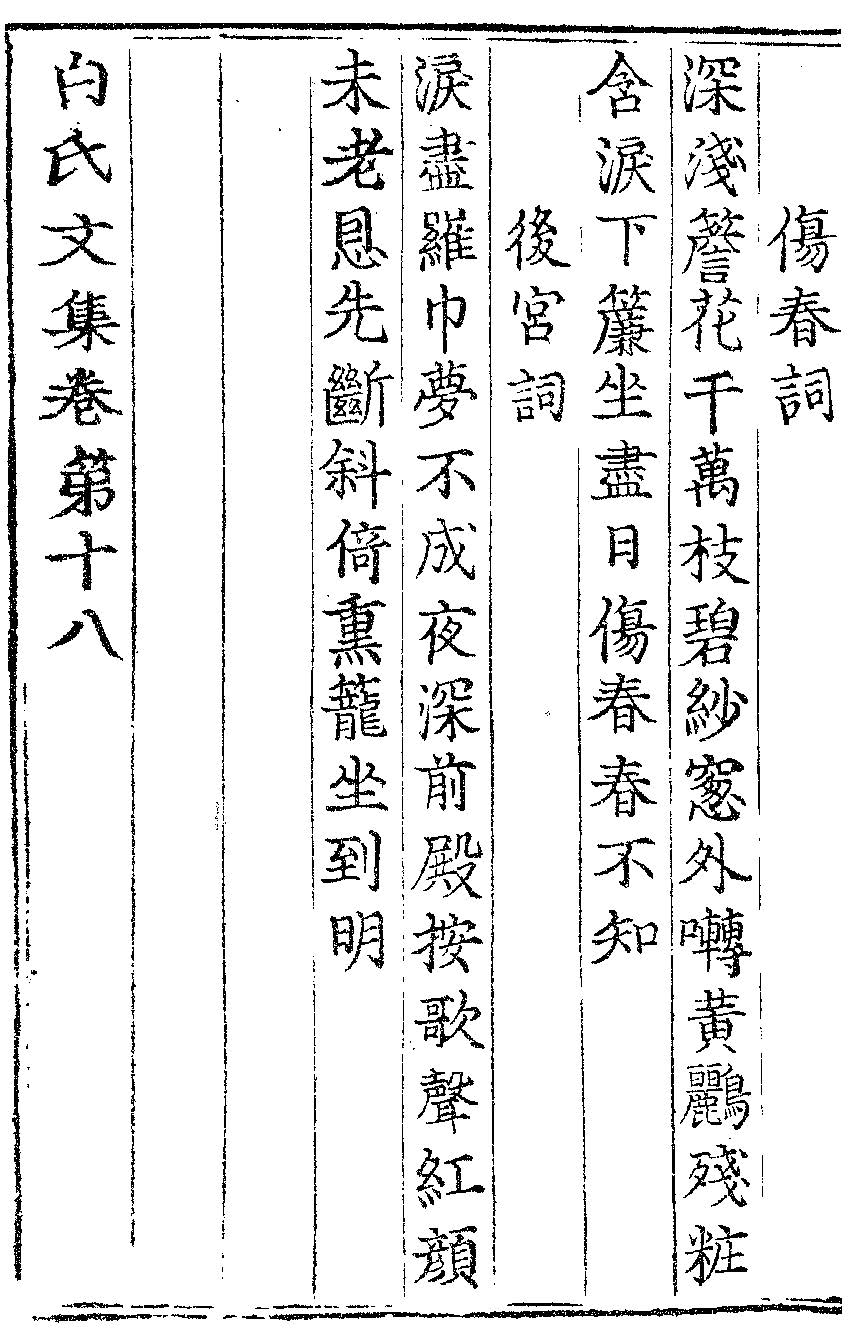 傷春詞
深淺簷花千萬枝碧紗窻外囀黃鸝殘粧
含淚下簾坐盡日傷春春不知
後宮詞
淚盡羅巾夢不成夜深前殿按歌聲紅顔
未老恩先斷斜倚熏籠坐到明
白氏文集卷第十八